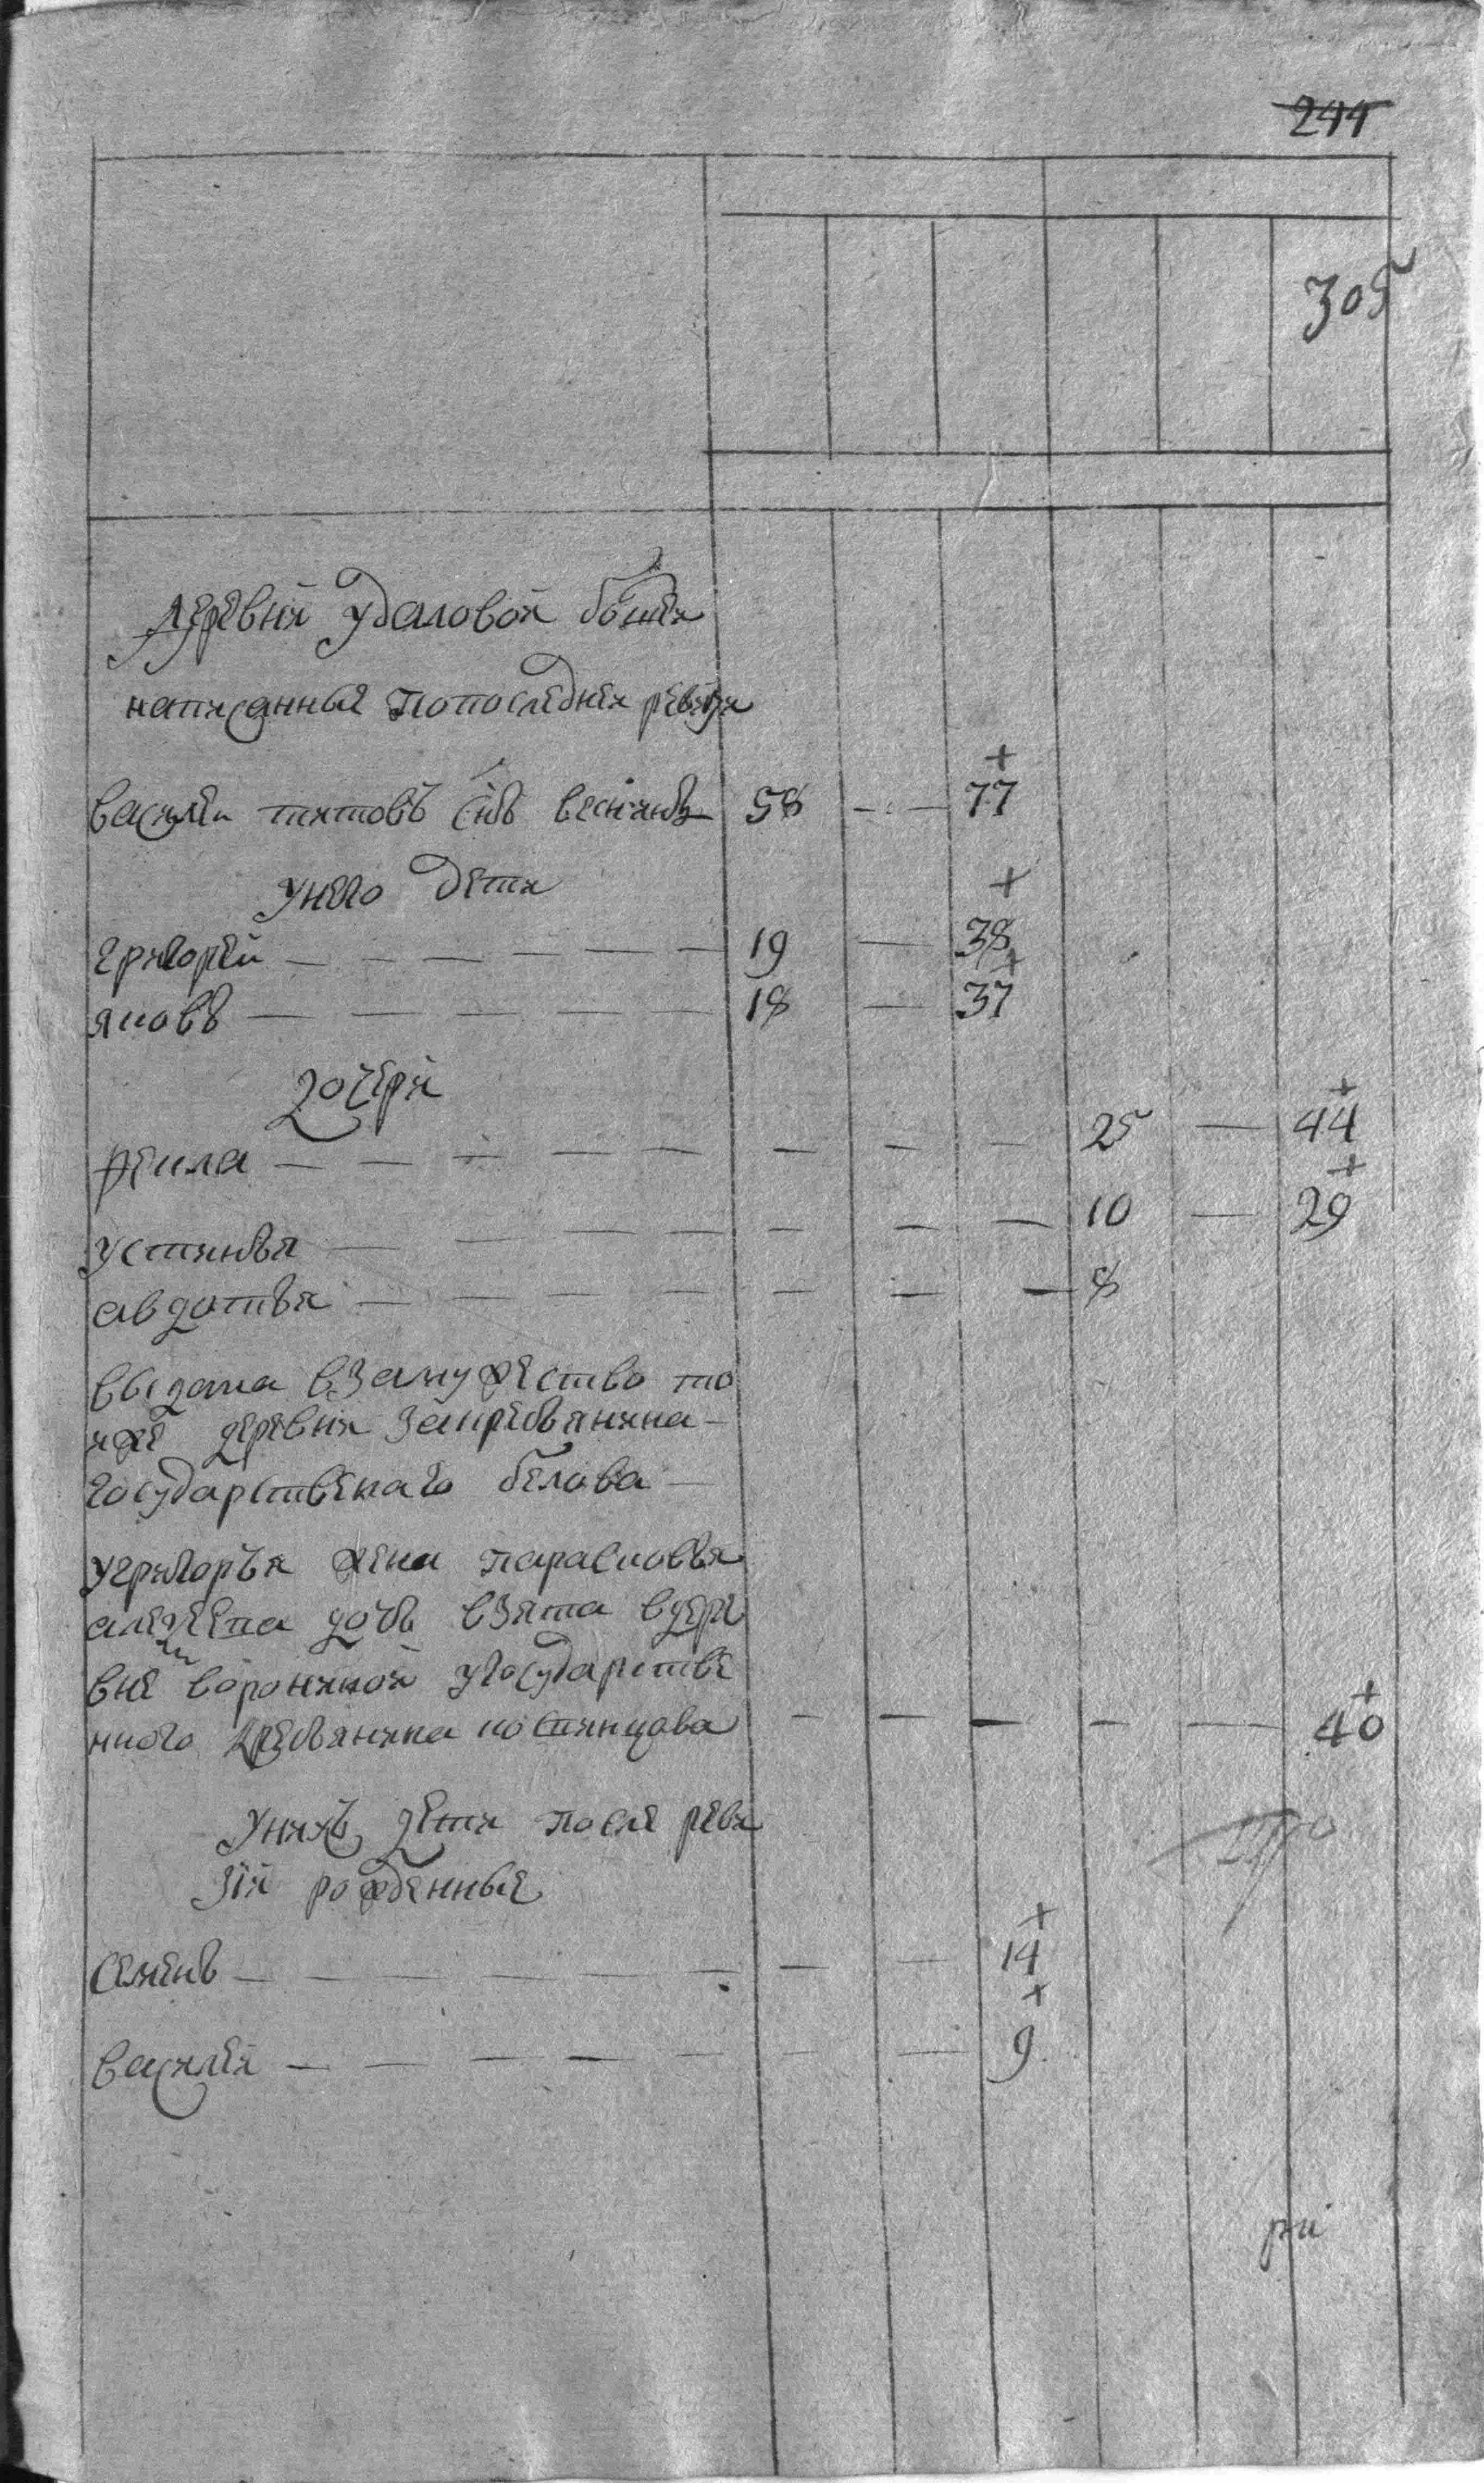 244
305
деревни удаловой
написанныя попоследней ревизи
василей титовъ снъ 58 77
унево дети
григорей 19 38
яковъ 18 37
дочери
фекла 25 44
устинья 10 29
авдотья 8
выдана взамужество то
иже деревни закрестьянина
государственаго белова
угригорья жена парасковья
дочь взята вдере
вне ворониной угосударстве
нного крестьянина костянцова 40
унихъ дети после реви
зіи рожденные
Семенъ 14
василей 9